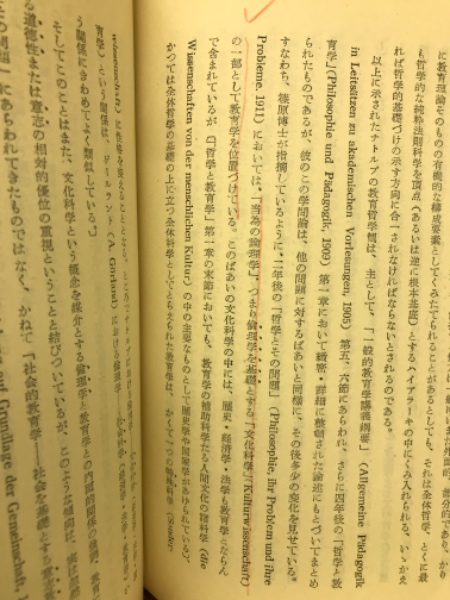 に教育理論そのものの有機的な構成要素としてくみたてられることがあるとしても、それは全体哲学、とくに最
も哲学的な純粋法則科学を頂点(あるいは逆に根本基底)とするハイアラーキの中にくみ入れられる、いいかえ
れば哲学的基礎づけの示す方向に合一されなければならないとされるのである。
以上に示されたナトルプの教育哲学観は、主として、「一般的教育学講義綱要」(Allgemeine Pädagogik
in Leitsätzen zu akademischen Vorlesungen, 1905) 第五、六節にあらわれ、さらに四年後の「哲学と教
育学」(Philosophie und Pädagogik, 1909) 第一章において緻密・詳細に整頓された論述にもとづいてまとめ
られたものであるが、彼のこの学問論は、他の問題に対するばあいと同様に、その後多少の変化を見せている。
すなわち、篠原博士が指摘しているように、二年後の「哲学とその問題」(Philosophie, ihr Problem und ihre
Probleme, 1911) においては、「当為の倫理学」、つまり倫理学を基礎とする「文化科学」(Kulturwissenschaft)
の一部として教育学を位置づけている。このばあいの文化科学の中には、歴史・経済学・法学も教育学とならん
で含まれているが(『哲学と教育学』第一章の末節においても、教育学の補助科学たる人間文化の諸科学 (die
Wissenschaften von der menschlichen Kultur) の中の主要なものとして歴史学や国家学があげられている)、
かつては全体哲学の基礎の上に立つ全体科学としてとらえられた教育学は、かくて一つの特殊科学 (Sonder-
wissenschaft) に
う関係に合わめてよく類似している。」
そしてこのことはまた、文化科学という概念を媒介とする倫理学と教育学との内面的関係の強調、
る道徳性または意志の相対的優位の重視ということと結びついているが、このような傾向は、
にあらわれてきたものではなく、かねて『社会的教育学――社会を基礎とする
auf Grundlage der Gemeinschaft,